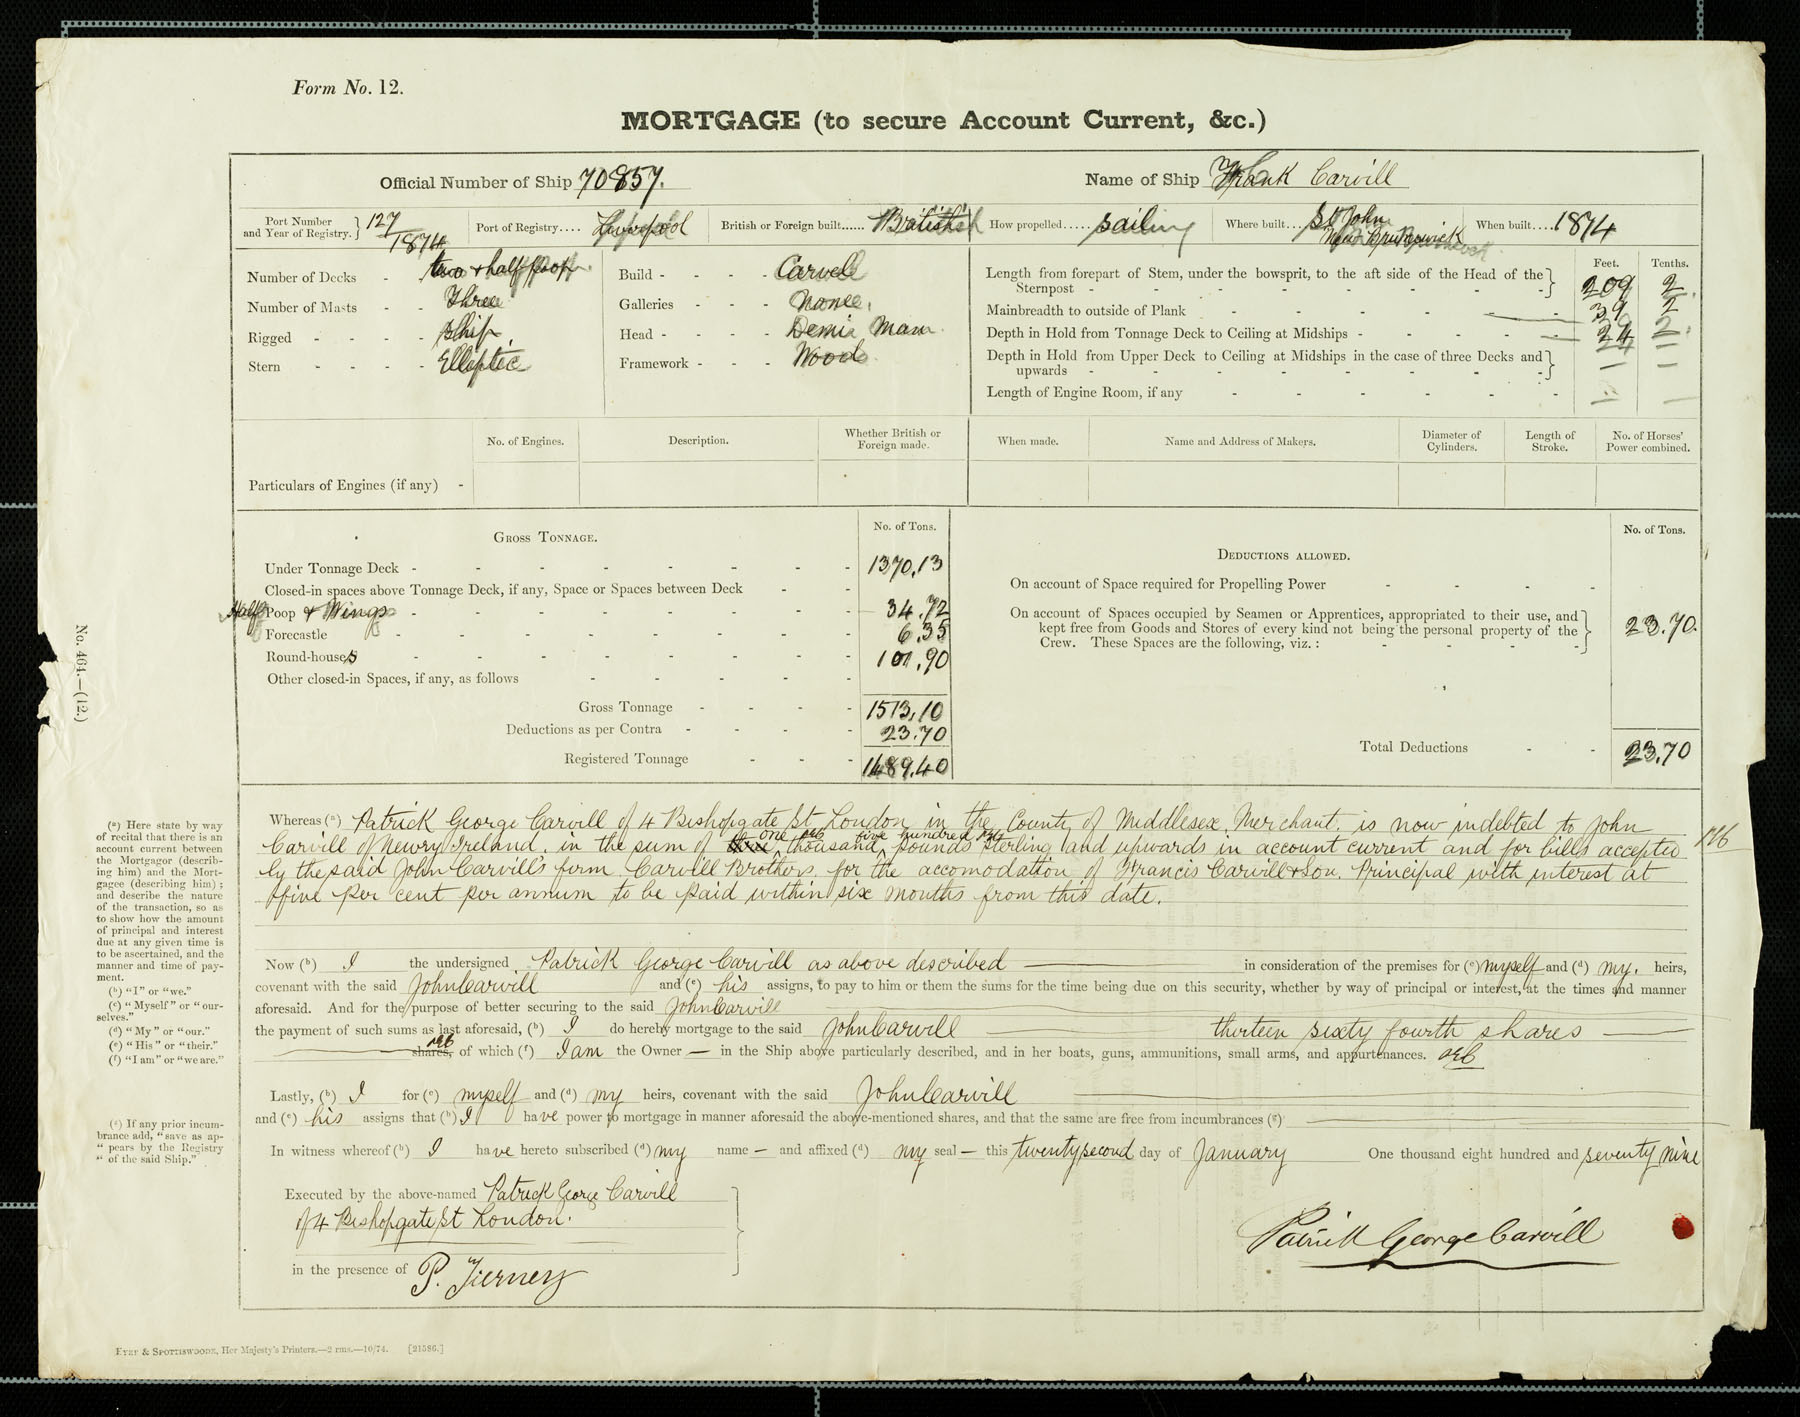 Form No. 12.
MORTGAGE (to secure Account Current, &c.)
Official Number of Ship 70857. Name of Ship Frank Carvill
Port Number and Year of Registry. } 127/1874 Port of Registry.... Liverpool British or Foreign built...... British How propelled..... sailing Where built... St John New Brunswick When built.... 1874
Number of Decks - two & half poop
Number of Masts - - Three
Rigged - - - - Ship
Stern - - - - Elliptic
Build - - - - Carvel
Galleries - - - None.
Head - - - - Demi Man
Framework - - - Wood
Feet. Tenths.
Length from forepart of Stem, under the bowsprit, to the aft side of the Head of the Sternpost } 209 2
Mainbreadth to outside of Plank 39 2
Depth in Hold from Tonnage Deck to Ceiling at Midships 24 2
Depth in Hold from Upper Deck to Ceiling at Midships in the case of three Decks and upwards } — —
Length of Engine Room, if any - —
No. of Engines. Description. Whether British or Foreign made. When made. Name and Address of Makers. Diameter of Cylinders. Length of Stroke. No. of Horses' Power combined.
Particulars of Engines (if any) -
GROSS TONNAGE. No. of Tons.
Under Tonnage Deck - 1370.13
Closed-in spaces above Tonnage Deck, if any, Space or Spaces between Deck - -
Half Poop & Wings - 34.72
Forecastle - 6.35
Round-houses - 101.90
Other closed-in Spaces, if any, as follows - -
Gross Tonnage - 1513.10
Deductions as per Contra - 23.70
Registered Tonnage - 1489.40
DEDUCTIONS ALLOWED. No. of Tons.
On account of Space required for Propelling Power - -
On account of Spaces occupied by Seamen or Apprentices, appropriated to their use, and
kept free from Goods and Stores of every kind not being the personal property of the
Crew. These Spaces are the following, viz.: - } 23.70.
Total Deductions - - 23.70
No. 464.—(12.)
Whereas (a) Patrick George Carvill of 4 Bishopgate St London in the County of Middlesex Merchant. is now indebted to John
Carvill of Newry Ireland. in the sum of one thousand five hundred pounds sterling and upwards in account current and for bills accepted
by the said John Carvill's firm Carvill Brothers. for the accomodation of Francis Carvill & Son. Principal with interest at
ffive per cent per annum to be paid within six months from this date.
Now (b) I the undersigned Patrick George Carvill as above described in consideration of the premises for (c) myself and (d) my. heirs,
covenant with the said John Carvill and (e) his assigns, to pay to him or them the sums for the time being due on this security, whether by way of principal or interest, at the times and manner
aforesaid. And for the purpose of better securing to the said John Carvill
the payment of such sums as last aforesaid, (b) I do hereby mortgage to the said John Carvill thirteen sixty fourth shares
shares, of which (f) I am the Owner — in the Ship above particularly described, and in her boats, guns, ammunitions, small arms, and appurtenances.
Lastly, (b) I for (c) myself and (d) my heirs, covenant with the said John Carvill
and (e) his assigns that (b) I have power to mortgage in manner aforesaid the above-mentioned shares, and that the same are free from incumbrances (g)
In witness whereof (b) I have hereto subscribed (d) my name — and affixed (d) my seal — this twenty second day of January One thousand eight hundred and seventy nine
Executed by the above-named Patrick George Carvill
of 4 Bishopgate St London.
in the presence of P. Tierney
Patrick George Carvill
(a) Here state by way
of recital that there is an
account current between
the Mortgagor (describ-
ing him) and the Mort-
gagee (describing him);
and describe the nature
of the transaction, so as
to show how the amount
of principal and interest
due at any given time is
to be ascertained, and the
manner and time of pay-
ment.
(b) "I" or "we."
(c) "Myself" or "our-
selves."
(d) "My" or "our."
(e) "His" or "their."
(f) "I am" or "we are."
(g) If any prior incum-
brance add, "save as ap-
"pears by the Registry
"of the said Ship."
EYRE & SPOTTISWOODE, Her Majesty's Printers.—2 rms.—10/74. [21586.]